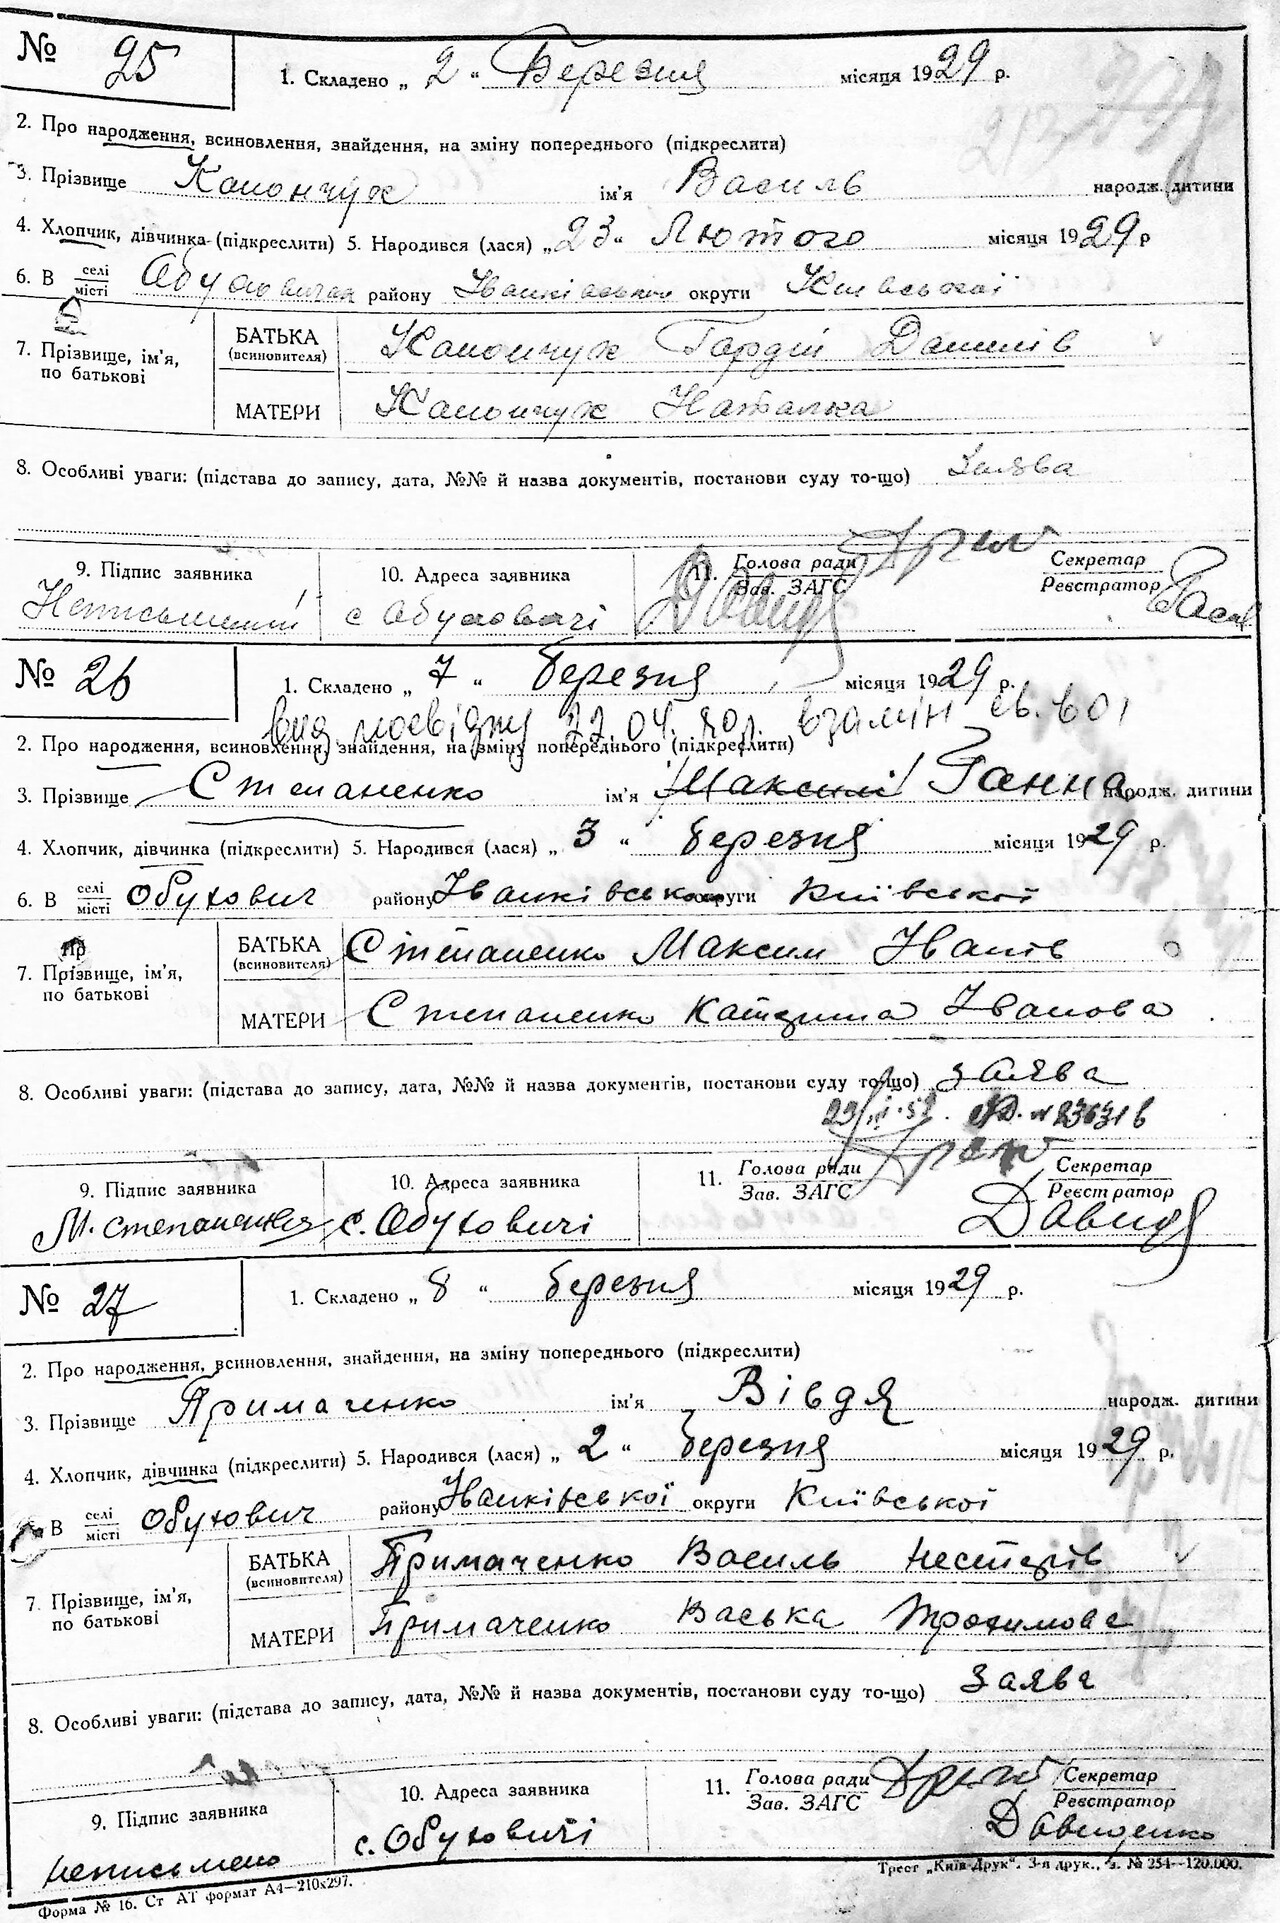 № 25
1. Складено „ 2 “ Березня місяця 1929 р.
2. Про народження, всиновлення, знайдення, на зміну попереднього (підкреслити)
3. Прізвище ім'я Василь народж. дитини
4. Хлопчик, дівчинка (підкреслити) 5. Народився (лася) „ 23 “ Лютого місяця 1929 р
6. В селі/місті Обуховичах району Іванківського округи Київської
7. Прізвище, ім'я, по батькові
БАТЬКА (всиновителя) Гордій Данилів
МАТЕРИ Наталка
8. Особливі уваги: (підстава до запису, дата, №№ й назва документів, постанови суду то-що) Заява
9. Підпис заявника 10. Адреса заявника 11. Голова ради Зав. ЗАГС Секретар Реєстратор
Неписьменний с Обуховичі
№ 26
1. Складено „ 7 “ березня місяця 1929 р.
22.04. взамін
2. Про народження, всиновлення, знайдення, на зміну попереднього (підкреслити)
3. Прізвище Степаненко ім'я Максим Ганна народж. дитини
4. Хлопчик, дівчинка (підкреслити) 5. Народився (лася) „ 3 “ березня місяця 1929 р.
6. В селі/місті Обухович району Іванківської округи Київської
7. Прізвище, ім'я, по батькові
БАТЬКА (всиновителя) Степаненко Максим Іванів
МАТЕРИ Степаненко Катерина Іванова
8. Особливі уваги: (підстава до запису, дата, №№ й назва документів, постанови суду то-що) заява
9. Підпис заявника 10. Адреса заявника 11. Голова ради Зав. ЗАГС Секретар Реєстратор
М. Степаненко с. Обуховичі
№ 27
1. Складено „ 8 “ березня місяця 1929 р.
2. Про народження, всиновлення, знайдення, на зміну попереднього (підкреслити)
3. Прізвище Примаченко ім'я Вівдя народж. дитини
4. Хлопчик, дівчинка (підкреслити) 5. Народився (лася) „ 2 “ березня місяця 1929 р.
В селі/місті Обухович району Іванківської округи Київської
7. Прізвище, ім'я, по батькові
БАТЬКА (всиновителя) Примаченко Василь Нестерів
МАТЕРИ Примаченко Васька Трохимова
8. Особливі уваги: (підстава до запису, дата, №№ й назва документів, постанови суду то-що) Заява
9. Підпис заявника 10. Адреса заявника 11. Голова ради Зав. ЗАГС Секретар Реєстратор
неписьмено с. Обуховичі Давиденко
Форма № 16. Ст АТ формат А4—210х297.
Трест „Київ-Друк“. 3-я друк., з. № 254—120.000.